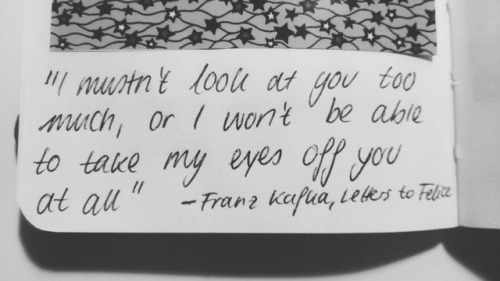 "I mustn't look at you too
much, or I won't be able
to take my eyes off you
at all" - Franz Kafka, Letters to Felice